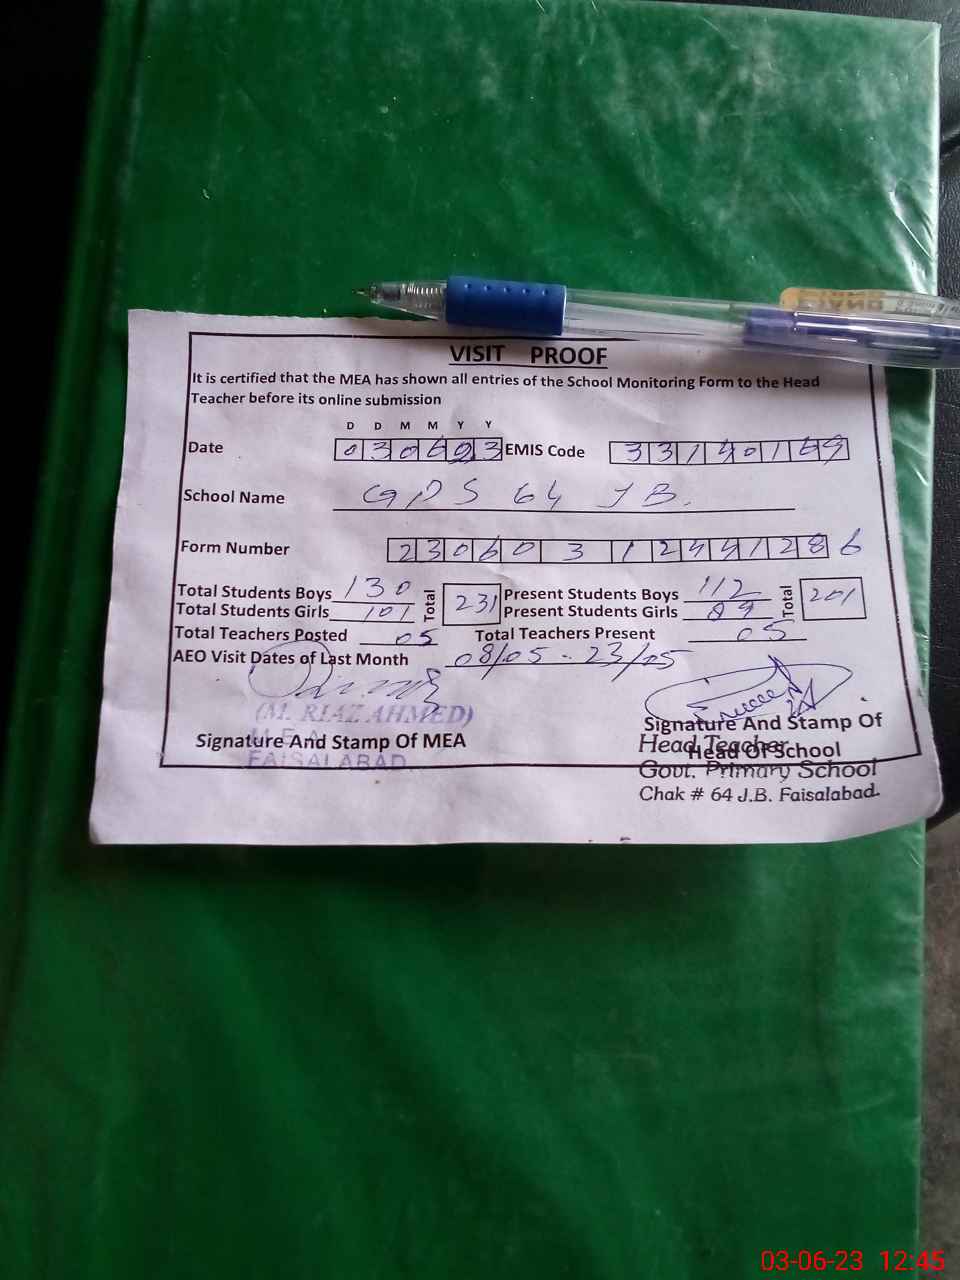 VISIT PROOF
It is certified that the MEA has shown all entries of the School Monitoring Form to the Head
Teacher before its online submission
D D M M Y Y
Date 030623 EMIS Code 33140169
School Name GPS 64 JB.
Form Number 23060312441286
Total Students Boys 130 Total 231 Present Students Boys 112 Total 201
Total Students Girls 101 Present Students Girls 89
Total Teachers Posted 05 Total Teachers Present 05
AEO Visit Dates of Last Month 08/05 - 23/05
(M. RIAZ AHMED)
M.E.A
FAISALABAD
Signature And Stamp Of MEA
Signature And Stamp Of
Head Of School
Head Teacher
Govt. Primary School
Chak # 64 J.B. Faisalabad.
03-06-23 12:45